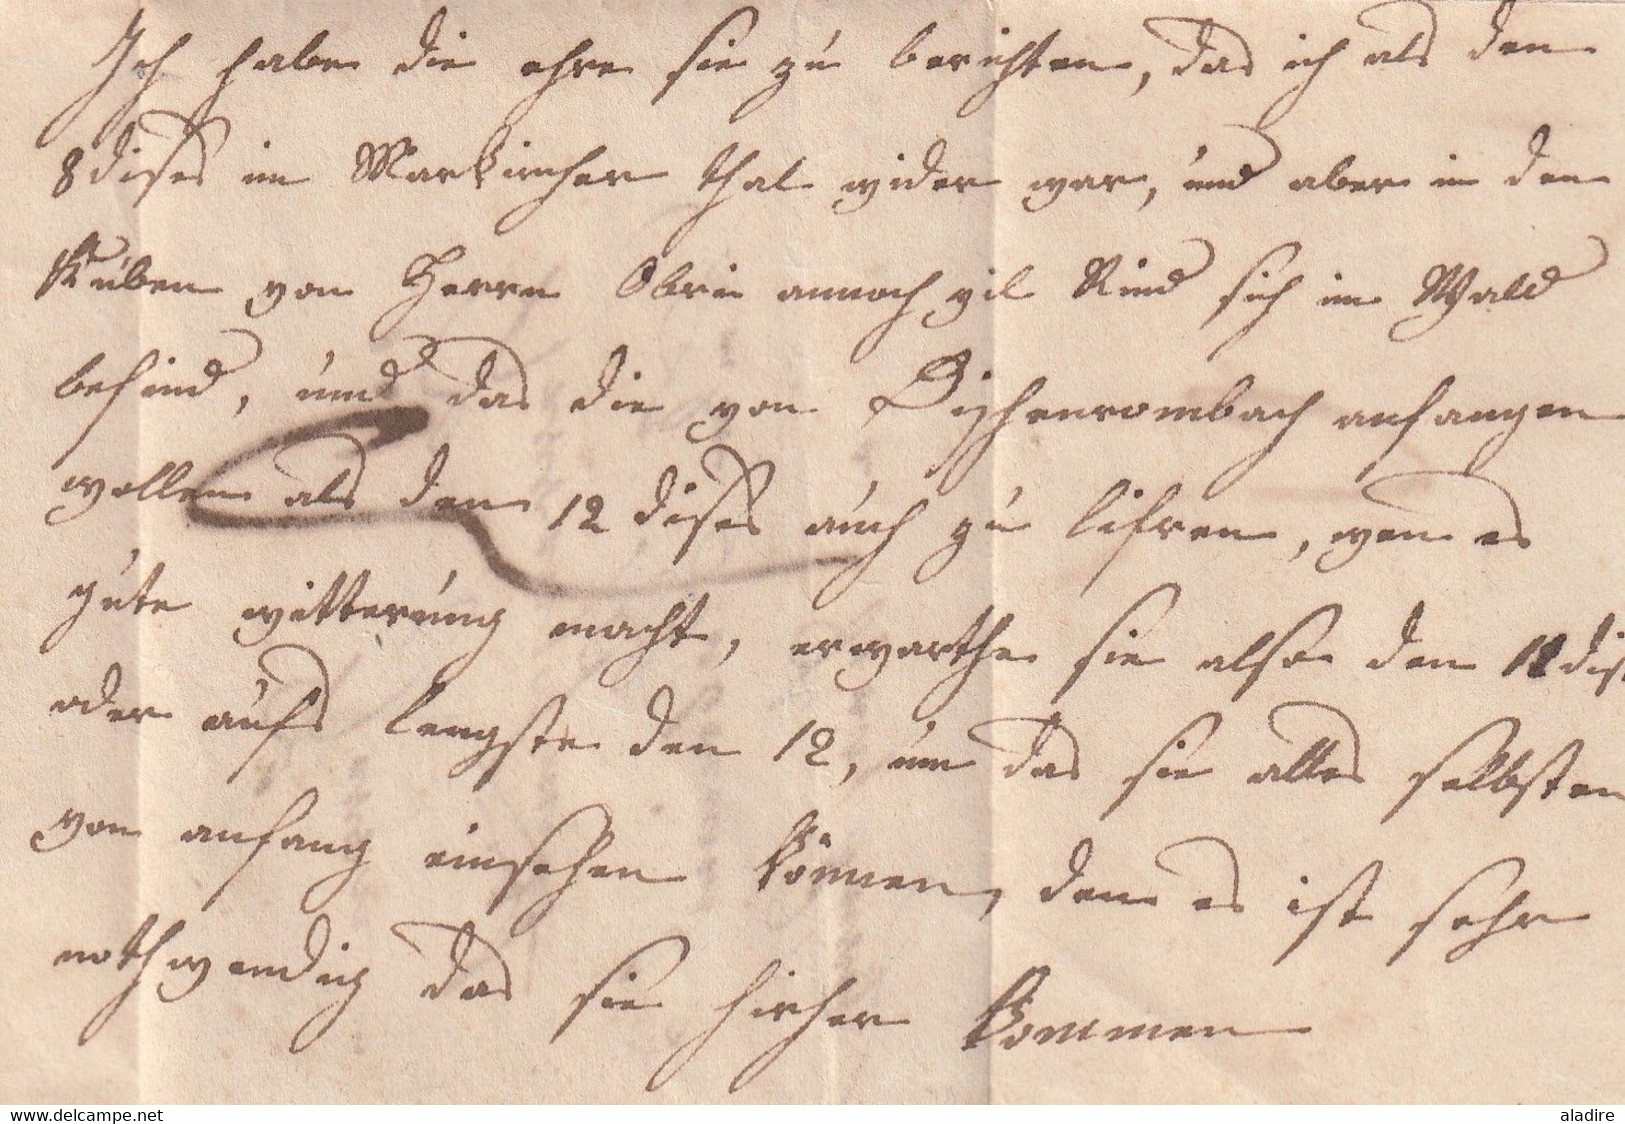 Ich habe die ehre sie zu berichten, das ich als den
8 dises im Markircher thal wider war, und aber in den
von Herrn Obrin annoch vil Rind sich im Wald
befind, und das die von Dischenrombach anfangen
wollen als den 12 dises auch zu lifren, wan es
gute witterung macht, erwarthe sie also den 11 dis
oder aufs lengste den 12, um das sie alles selbsten
von anfang einsehen können, den es ist sehr
nothwendig das sie hirher kommen
www.delcampe.net
aladire